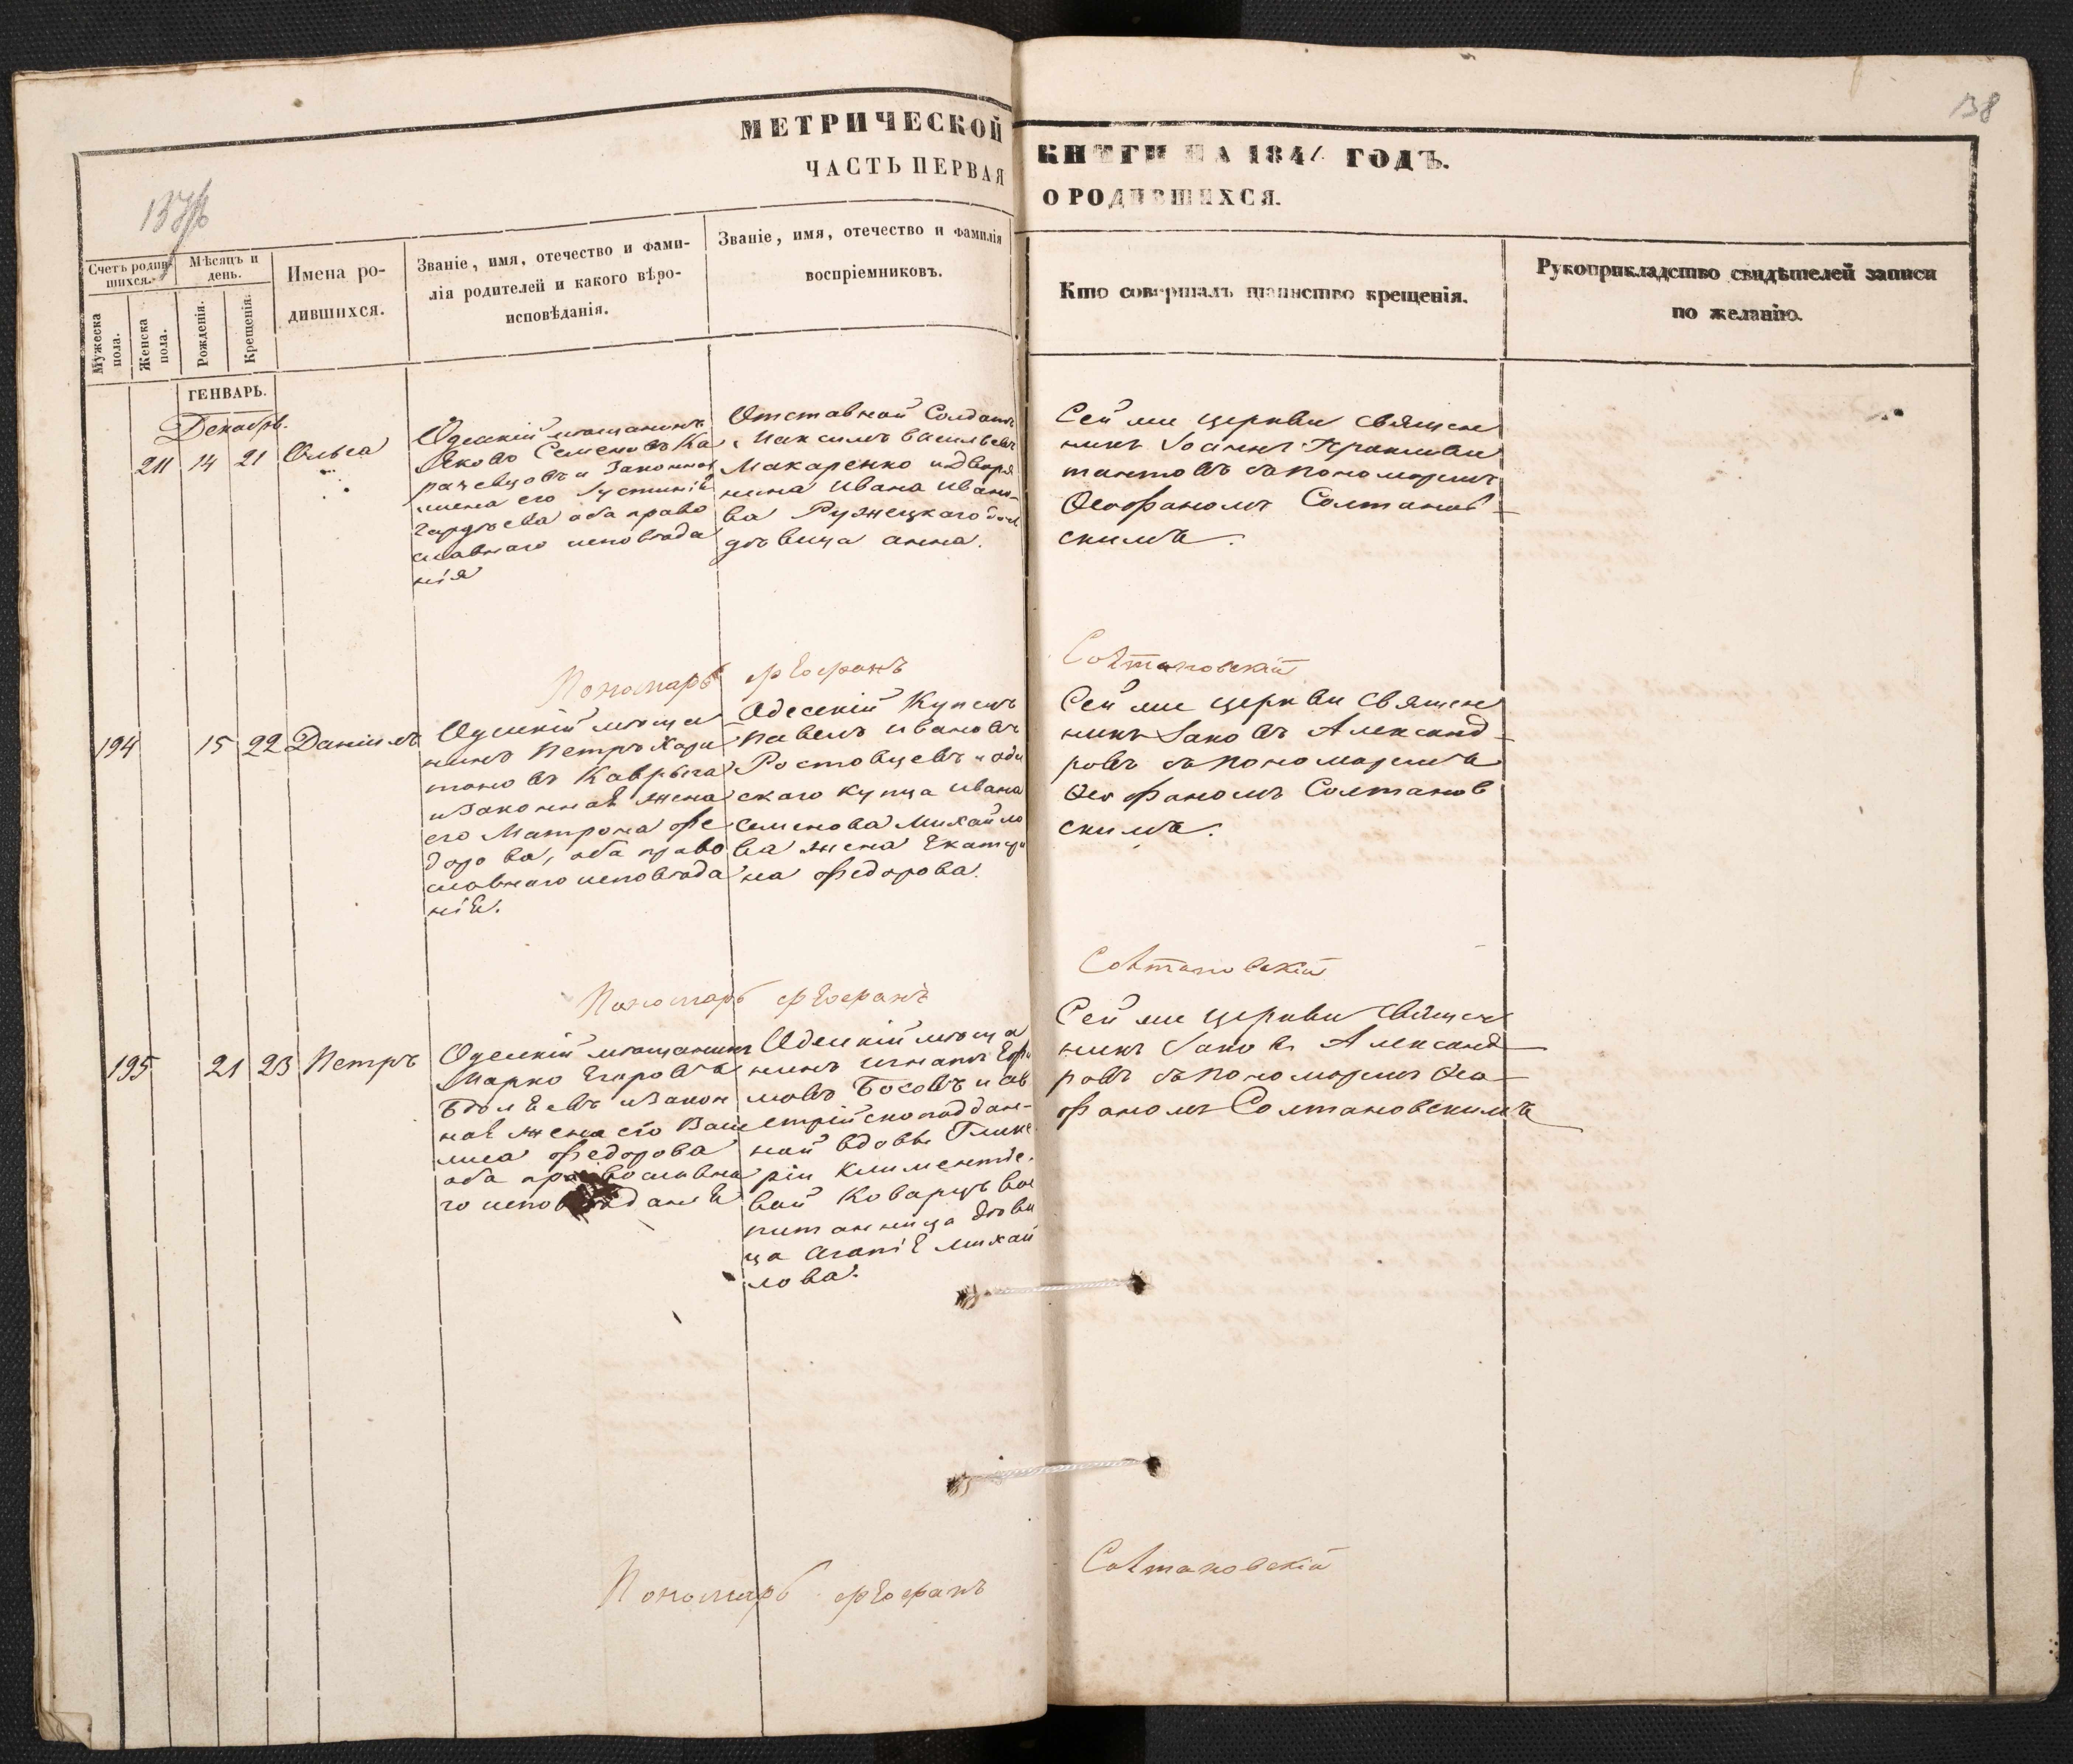 138
МЕТРИЧЕСКОЙ КНИГИ НА 184 ГОДЪ.
ЧАСТЬ ПЕРВАЯ О РОДИВШИХСЯ.
Счетъ родив-
шихся.
Мужеска
пола.
Женска
пола.
Мѣсяцъ и
день.
Рожденія.
Крещенія.
Имена ро-
дившихся.
Званіе, имя, отечество и фами-
лія родителей и какого вѣро-
исповѣданія.
Званіе, имя, отечество и фамилія
воспріемниковъ.
Кто совершалъ таинство крещенія.
Рукоприкладство свидѣтелей записи
по желанію.
ГЕНВАРЬ.
Декабрь.
211 14 21 Ольга
Одесскій мѣщанинъ
Яковъ Семеновъ Ка
рачевцовъ и Законная
жена его Іустинія
оба право
славнаго исповѣда
нія
Отставной Солдатъ
Максимъ Васильевъ
Макаренко и дворя
нина Ивана Ивано-
ва Ружецкаго
дѣвица Анна.
Сей же церкви священ
никъ Іоаннъ
съ пономаремъ
Ѳеофаномъ Солтанов-
скимъ.
Пономарь Феофанъ Солтановскій
194 15 22 Даніилъ
Одесскій мѣща
нинъ Петръ Хари
тоновъ Каврыга
и Законная жена
его Матрона Фе
дорова, оба право
славнаго исповѣда
нія.
Одесскій Купецъ
Павелъ Ивановъ
Ростовцевъ и оде
скаго купца Ивана
Семенова Михайло
ва жена Екатери
на Федорова.
Сей же церкви священ
никъ Іаковъ Александ-
ровъ съ пономаремъ
Ѳеофаномъ Солтанов
скимъ.
Пономарь Феофанъ Солтановскій
195 21 23 Петръ
Одесскій мѣщанинъ
Марко Егоровъ
и Закон
ная жена его Васи
лиса Федорова
оба православна
го исповѣданія
Одесскій мѣща
нинъ Игнатъ Ефи
мовъ Босовъ и ав
стрійскоподдан-
ной вдовы Глике
ріи Климентіе
вой Коварцъ вос
питанница дѣви
ца Агапія Михай
лова.
Сей же церкви священ
никъ Іаковъ Александ-
ровъ съ пономаремъ Ѳео-
фаномъ Солтановскимъ
Пономарь Феофанъ Солтановскій